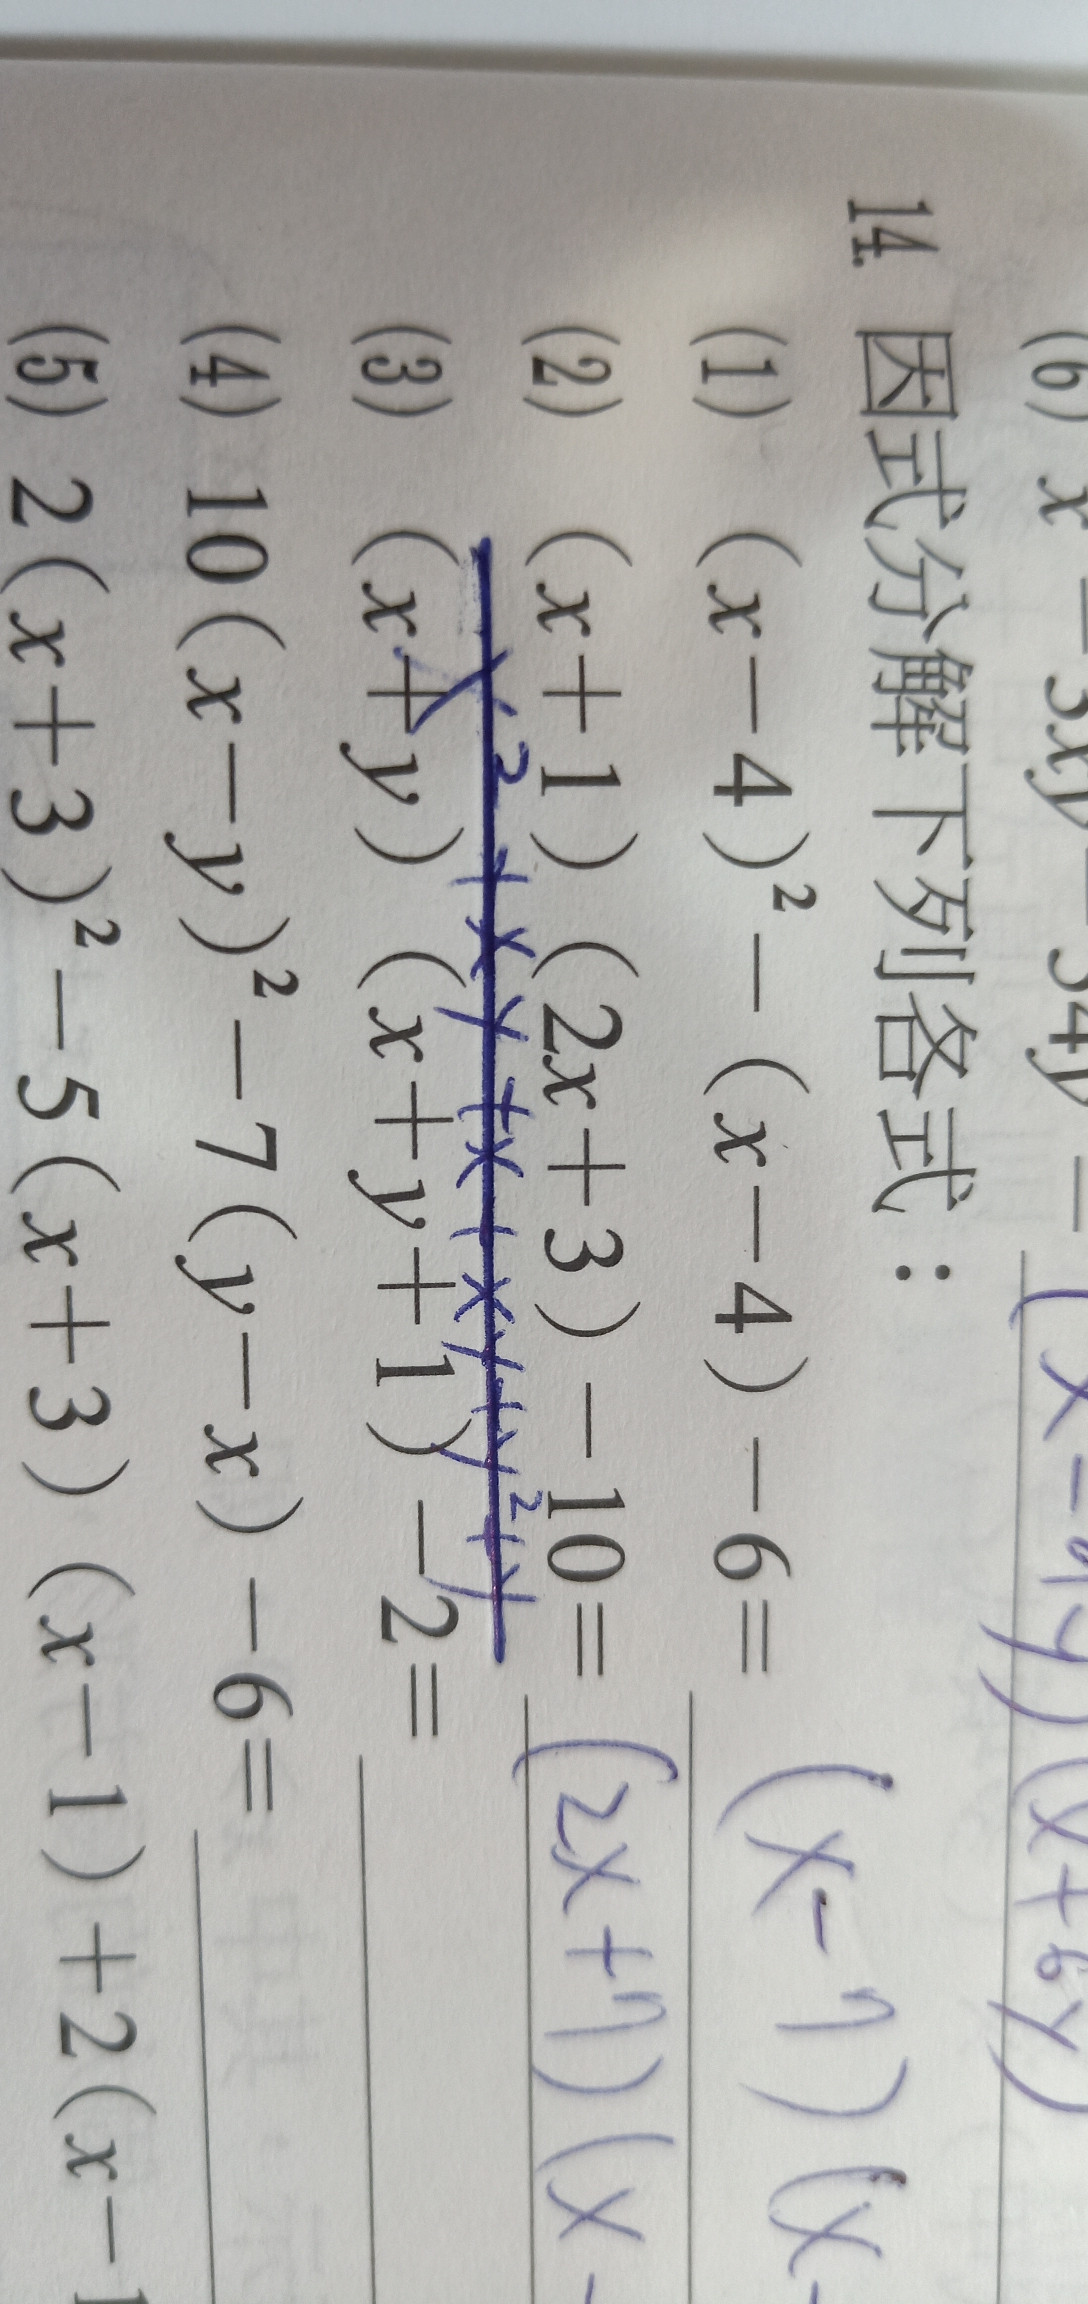 (6) x - 3xy - 54y = (x-9y)(x+6y)
14. 因式分解下列各式：
(1) (x-4)² - (x-4) - 6 = (x-7)(x-
(2) (x+1)(2x+3) - 10 = (2x+7)(x-
x²+xy+x+xy+y²+y
(3) (x+y)(x+y+1) - 2 =
(4) 10(x-y)² - 7(y-x) - 6 =
(5) 2(x+3)² - 5(x+3)(x-1) + 2(x-1